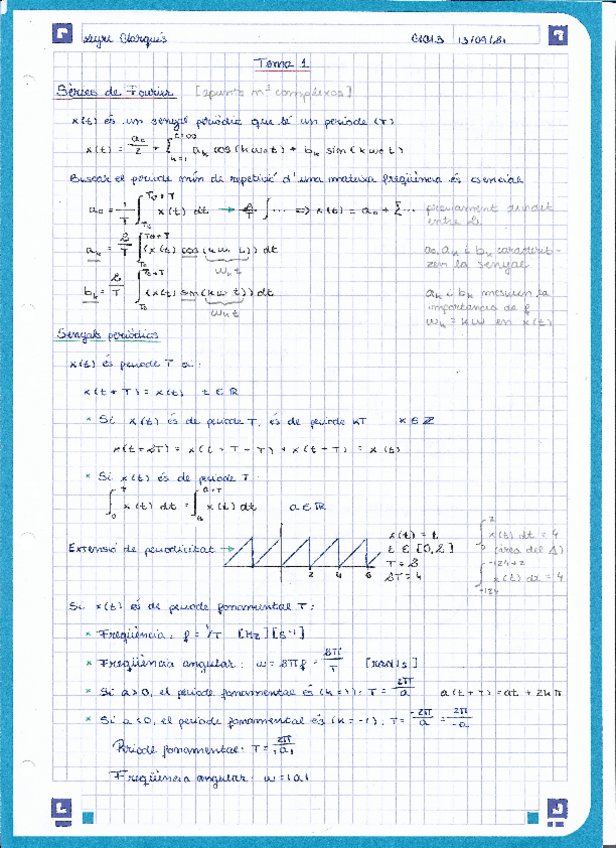 Tema 1
Sèries de Fourier [apunts nº complexos]
x(t) és un senyal periòdic que té un periode (T)
x(t) = a₀/2 + Σ aₖ cos(kω₀t) + bₖ sin(kω₀t)
Buscar el periode mín de repetició d'una mateixa freqüència és esencial
a₀ = 1/T ∫ x(t) dt → ∫ ... ⇔ x(t) = a₀ + Σ... previament dividit
entre 2.
aₖ = 2/T ∫ (x(t) cos(kω t)) dt
ωₖt
a₀, aₖ i bₖ caracterit-
zen la senyal
bₖ = 2/T ∫ (x(t) sin(kω t)) dt
ωₖt
aₖ i bₖ mesuren la
importància de f
ωₖ = kω en x(t)
Senyals periòdics
x(t) és periode T si:
x(t+T) = x(t) t ∈ R
* Si x(t) és de periode T, és de periode kT k ∈ Z
x(t+2T) = x(t+T+T) = x(t+T) = x(t)
* Si x(t) és de periode T
∫ x(t) dt = ∫ x(t) dt a ∈ R
Extensió de periodicitat →
2 4 6
x(t) = t
t ∈ [0,2]
T = 2
2T = 4
x(t) dt = 4
(àrea del Δ)
x(t) dt = 4
Si x(t) és de periode fonamental T:
* Freqüència: f = 1/T [Hz] [s⁻¹]
* Freqüència angular: ω = 2πf = 2π/T [rad/s]
* Si a>0, el periode fonamental és (k=1): T = 2π/a a(t+T) = at + 2kπ
* Si a<0, el periode fonamental és (k=-1): T = -2π/a = 2π/-a
Periode fonamental: T = 2π/|a|
Freqüència angular: ω = |a|